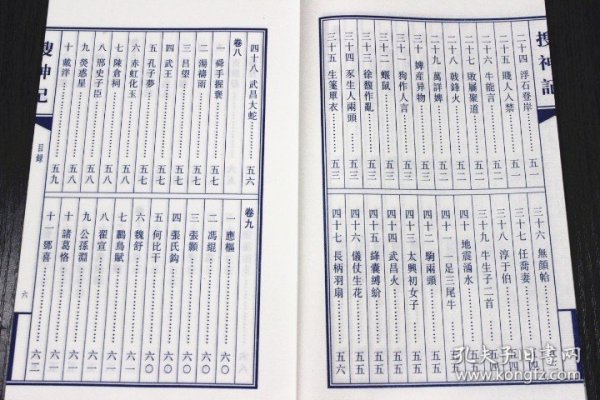 搜神記
二十四 浮石登岸……五一
二十五 賤人入禁……五一
二十六 牛能言……五二
二十七 敗屨聚道……五二
二十八 戟鋒火……五二
二十九 萬詳婢……五二
三十 婢產异物……五三
三十一 狗作人言……五三
三十二 蝘鼠……五三
三十三 徐馥作亂……五三
三十四 豕生人兩頭……五三
三十五 生箋單衣……五三
三十六 無顏帢
三十七 任喬妻
三十八 淳于伯
三十九 牛生子二首
四十 地震涌水
四十一 一足三尾牛
四十二 駒兩頭……五五
四十三 太興初女子……五五
四十四 武昌火……五五
四十五 絳囊縛紒……五五
四十六 儀仗生花……五六
四十七 長柄羽扇……五六
四十八 武昌大蛇……五六
卷八
一 舜手握褒……五七
二 湯禱雨……五七
三 呂望……五七
四 武王……五七
五 孔子夢……五七
六 赤虹化玉……五八
七 陳倉祠……五八
八 邢史子臣……五八
九 熒惑星……五九
十 戴洋……五九
卷九
一 應樞……六〇
二 馮緄……六〇
三 張顥……六〇
四 張氏鈎……六〇
五 何比干……六〇
六 魏舒……六〇
七 鵩鳥賦……六一
八 翟宣……六一
九 公孫淵……六一
十 諸葛恪……六一
十一 鄧喜……六二
搜神記
目録
六
孔夫子旧書网
www.kongfz.com